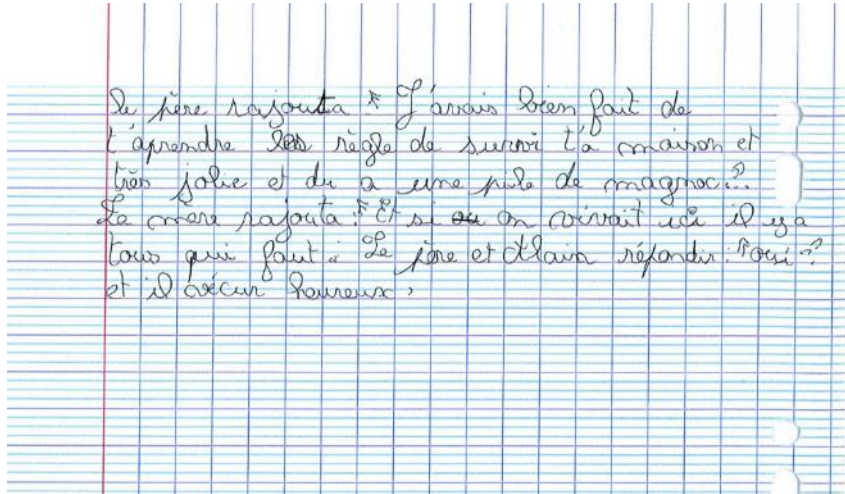 le père rajouta : " J'avais bien fait de
t'aprendre les règle de survi t'a maison et
très jolie et du a une pile de magnoc. "
La mère rajouta : " Et si on vivait ici il y a
tous qui faut " Le père et Alain répondir : " oui "
et il vécur heureux,